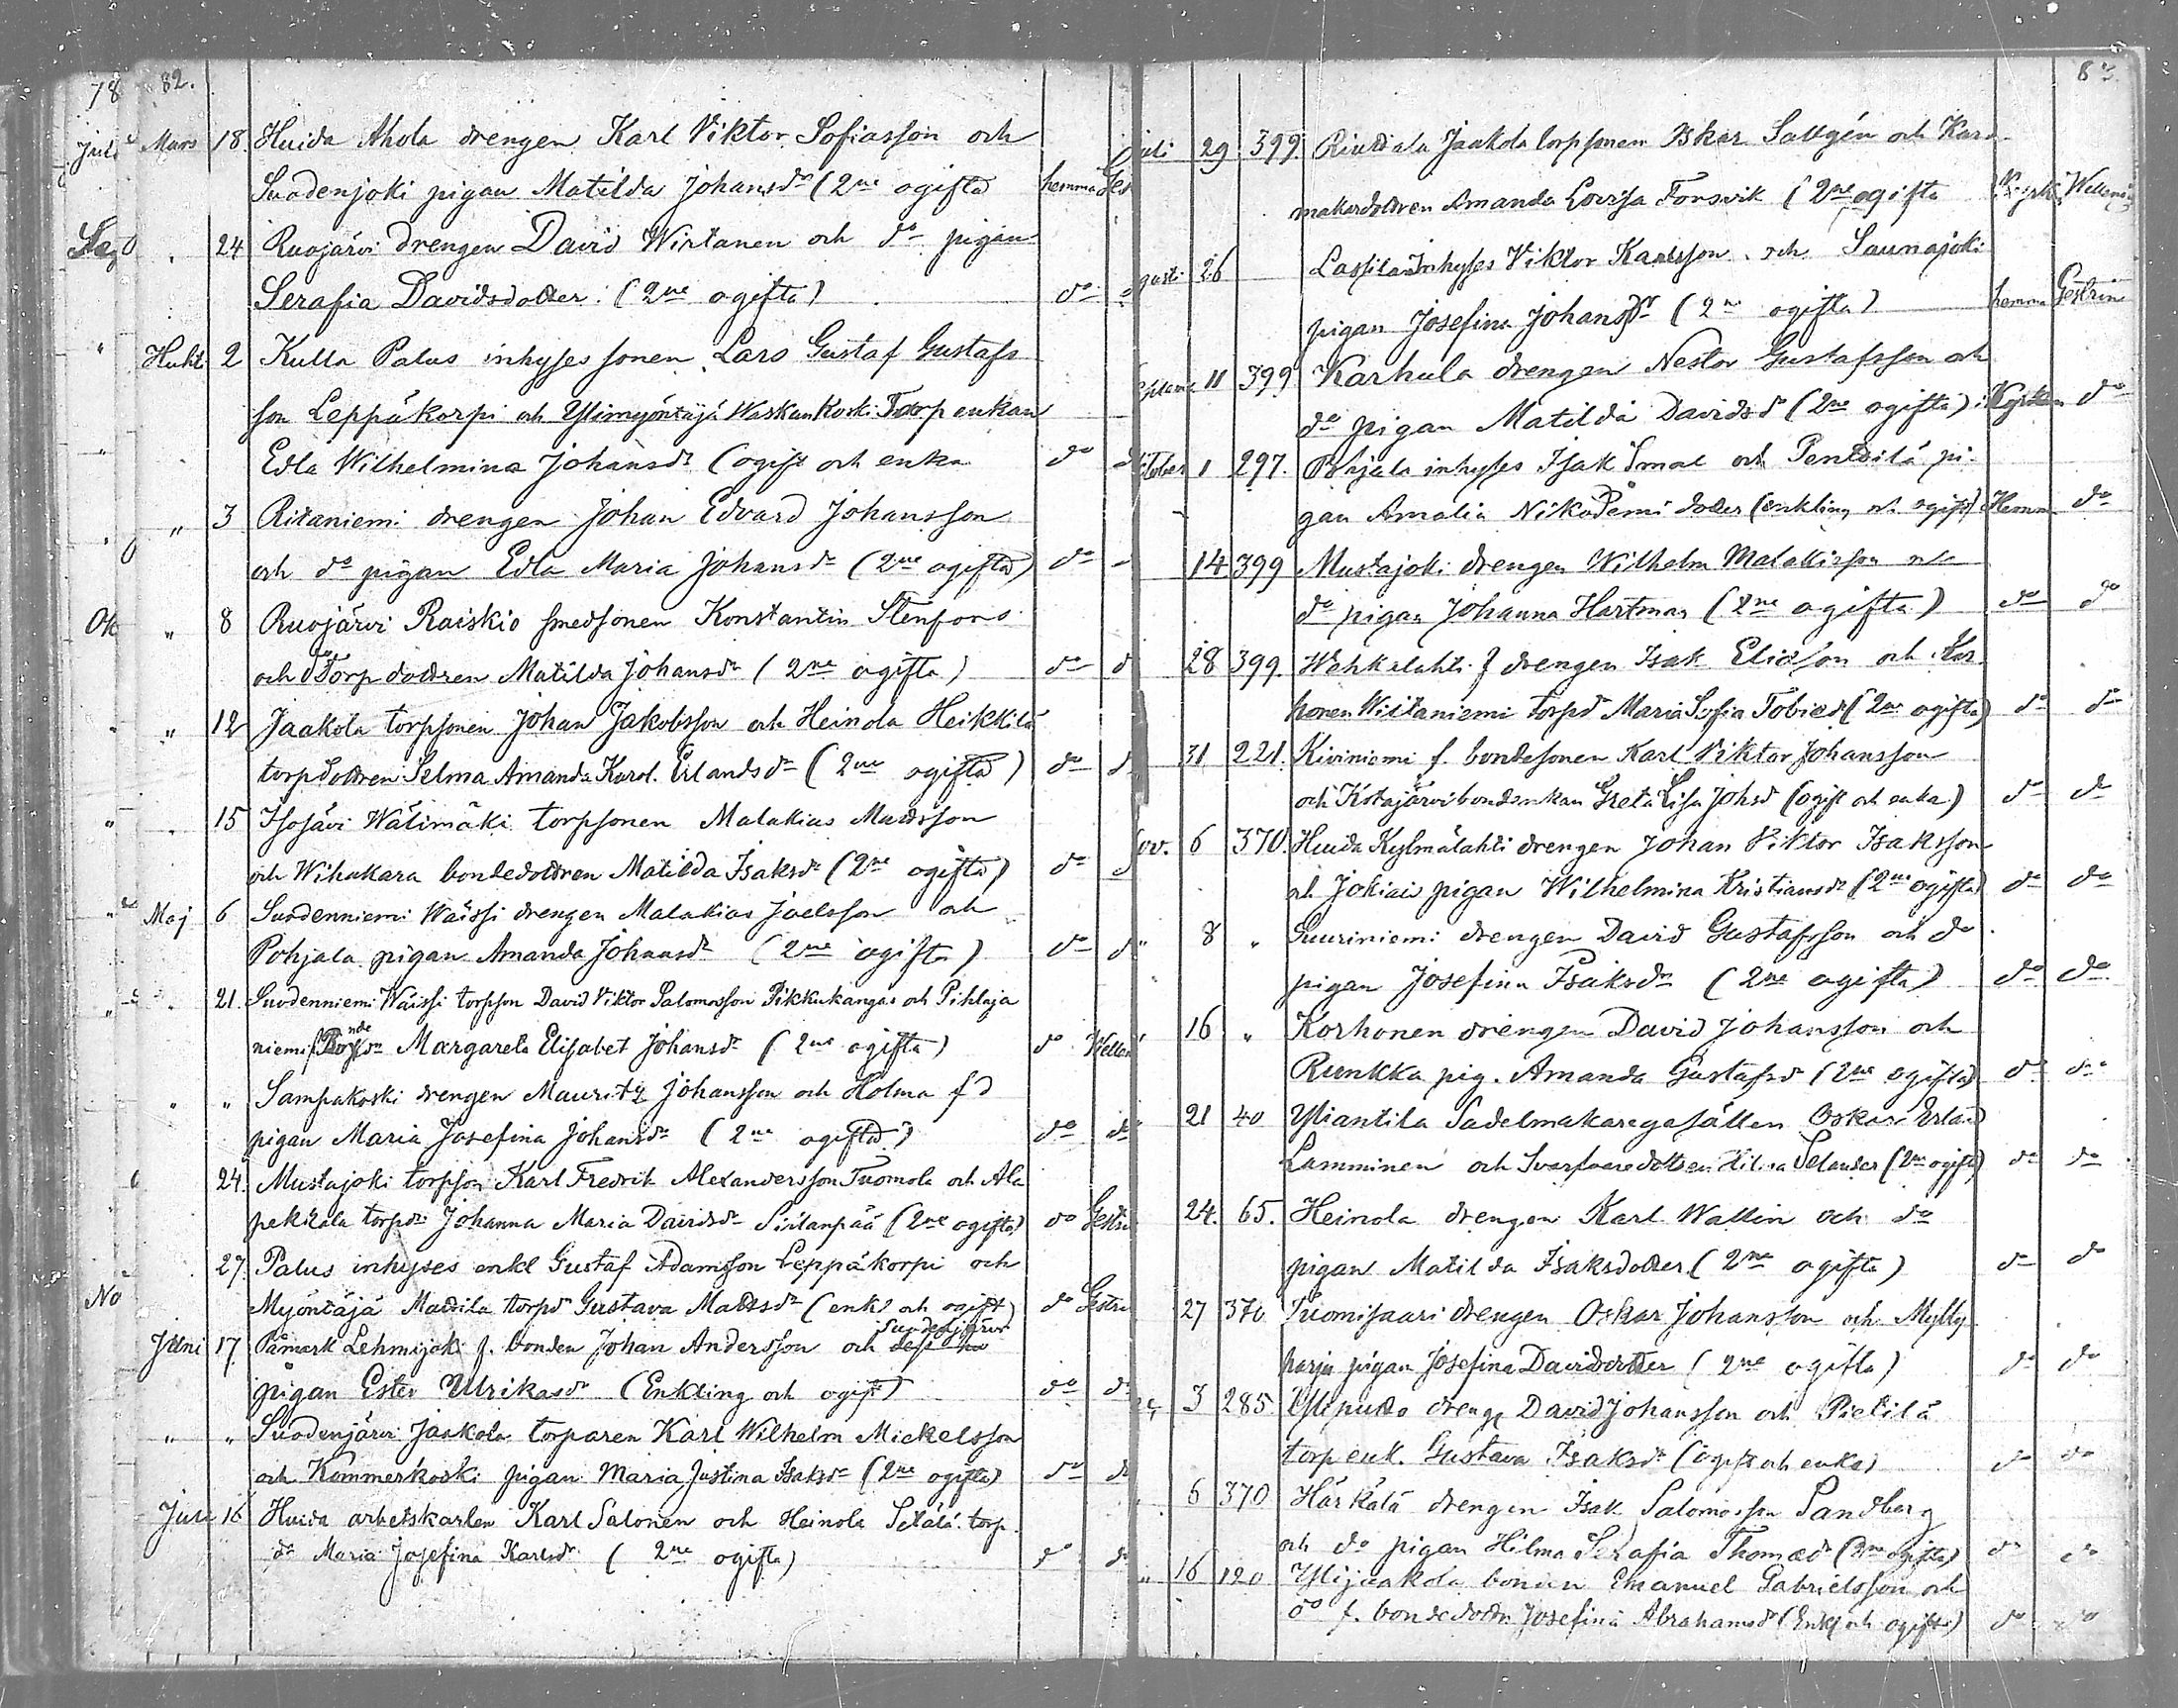 78 82.
Juli Mars 18. Huida Ahola drengen Karl Viktor Sofiasson och
Suodenjoki pigan Matilda Johansdr (2ne ogifta hemma
24 Ruojärvi drengen David Wirtanen och do pigan
Serafia Davidsdotter. (2ne ogifta) do
Huht 2 Kulla Palus inhyses sonen Lars Gustaf Gustafs
son Leppäkorpi och Ylimyöntäjä Waskunkoski Torp enkan
Edla Wilhelmina Johansdr (ogift och enka do
" 3 Ritaniemi drengen Johan Edvard Johansson
och do pigan Edla Maria Johansdr (2ne ogifta) do
" 8 Ruojärvi Raiskio smedsonen Konstantin Stenfors
och Torpdottren Matilda Johansdr (2ne ogifta) do
" 12 Jaakola torpsonen Johan Jakobsson och Heinola Heikkilä
torpdottren Selma Amanda Karol. Erlandsdr (2ne ogifta) do
15 Isosävi Wälimäki torpsonen Malakias Mattsson
och Wihakara bondedottren Matilda Isaksdr (2ne ogifta) do
Maj 6 Suodenniemi Wäissi drengen Malakias Joelsson och
Pohjala pigan Amanda Johansdr (2ne ogifta) do
21. Suodenniemi Wäissi torpson David Viktor Salomosson Pikkukangas och Pihlaja
niemi f Bondedr Margareta Elisabet Johansdr (2ne ogifta) do Wellen
" Sampakoski drengen Mauritz Johansson och Holma f d
pigan Maria Josefina Johansdr (2ne ogifta) do do
24. Mustajoki torpson Karl Fredrik Alexandersson Tuomola och Ala
pekkala torpdr Johanna Maria Davidsdr Siltanpää (2ne ogifta) do Gestri
27. Palus inhyses enkl Gustaf Adamsson Leppäkorpi och
Myöntäjä Mattila torpdr Gustava Mattsdr (enkl och ogift) do Gestri
Juni 17 Påmark Lehmijoki f. bonden Johan Andersson och Suodenjärvi
pigan Ester Ulrikasdr (Enkling och ogift) do do
" " Suodenjärvi Jaakola torparen Karl Wilhelm Mickelsson
och Kömmerkoski pigan Maria Justina Isaksdr (2ne ogifta) do do
Juli 16 Huida arbetskarlen Karl Salonen och Heinola Setälä torp
dr Maria Josefina Karlsdr (2ne ogifta) do do
uli 29 399. Jaakola torpsonen Oskar Sallgén och
makardottren Amanda Lovisa Forsvik (2ne ogifta
gusti 26 Lassila Inhyses Viktor Karlsson och Saunajoki
pigan Josefina Johansdr (2ne ogifta) hemma Gestrin
eptemb 11 399 Karhula drengen Nestor Gustafsson och
do pigan Matilda Davidsdr (2ne ogifta) i Kyrkan do
ktober 1 297. Pohjala inhyses Isak Smal och Penttilä pi
gan Amalia Nikodemi dotter (enkling och ogift) Hemma do
14 399 Mustajoki drengen Wilhelm Malakiasson och
do pigan Johanna Hartman (2ne ogifta) do do
28 399. Wahkalahti f drengen Isak Eliasson och Kor
honen Wiitaniemi torpdr Maria Sofia Tobiasd (2ne ogifta) do do
31 221. Kiviniemi f. bondesonen Karl Viktor Johansson
och Kotajärvi bondenkan Greta Lisa Johsd (ogift och enka) do do
ov. 6 370. Huida Kylmälahti drengen Johan Viktor Isaksson
och Jokiais pigan Wilhelmina Kristiansdr (2ne ogifta) do do
8 " Suuriniemi drengen David Gustafsson och do
pigan Josefina Isaksdr (2ne ogifta) do do
16 " Korhonen drengen David Johansson och
Runkka pig. Amanda Gustafsd (2ne ogifta) do do
21 40 Yliantila Sadelmakaregesällen Oskar Erland
Lamminen och Svarfvaredottren Hilma Selander (2ne ogifta) do do
24. 65. Heinola drengen Karl Wallin och do
pigan Matilda Isaksdotter (2ne ogifta) do do
27 370 Suomisaari drengen Oskar Johansson och Mylly
harju pigan Josefina Davidsdotter (2ne ogifta) do do
3 285. Yliputto dreng David Johansson och Pietilä
torpenk. Gustava Isaksdr (ogift och enka) do do
6 370 Härkälä drengen Isak Salomosson Sandberg
och do pigan Hilma Serafia Thomæd (2ne ogifta) do do
" 16 120 Ylijaakola bonden Emanuel Gabrielsson och
do f. bondedottr Josefina Abrahamsd (Enkl och ogift) do do